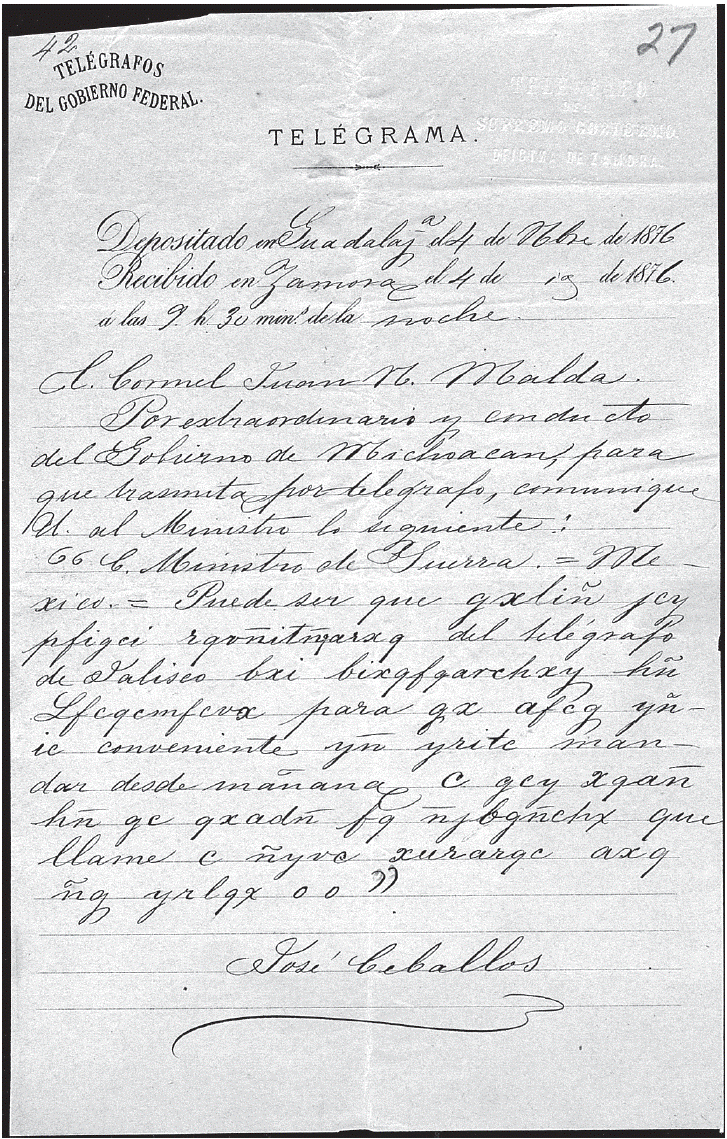 42
27
TELÉGRAFOS
DEL GOBIERNO FEDERAL.
SUPREMO GOBIERNO
OFICINA DE ZAMORA.
TELÉGRAMA.
Depositado en Guadalaj.ª el 4 de Nbre de 1876
Recibido en Zamora el 4 de id de 1876.
á las 9 h. 30 min.s de la noche.
C. Cornel Juan N. Malda.
Por extraordinario y conducto
del Gobierno de Michoacan, para
que trasmita por telegrafo, comunique
U. al Ministro lo siguiente:
"C. Ministro de Guerra. = Me-
xico. = Puede ser que gxliñ jcy
pfigci rgoñitmarxq del telégrafo
de Jalisco bxi bixqfqarchxy hñ
Lfcqcmfcvx para gx afcg yñ-
ic conveniente yñ yritc man-
dar desde mañana c gcy xgañ
hñ gc gxadñ fg ñjbgñchx que
llame c ñyvc xurarqc axq
ñg yrlqx o o"
José Ceballos